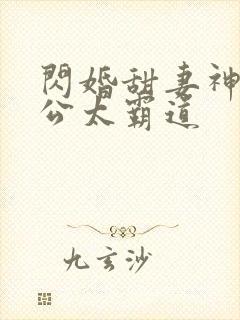 閃婚甜妻神
公太霸道
九玄沙